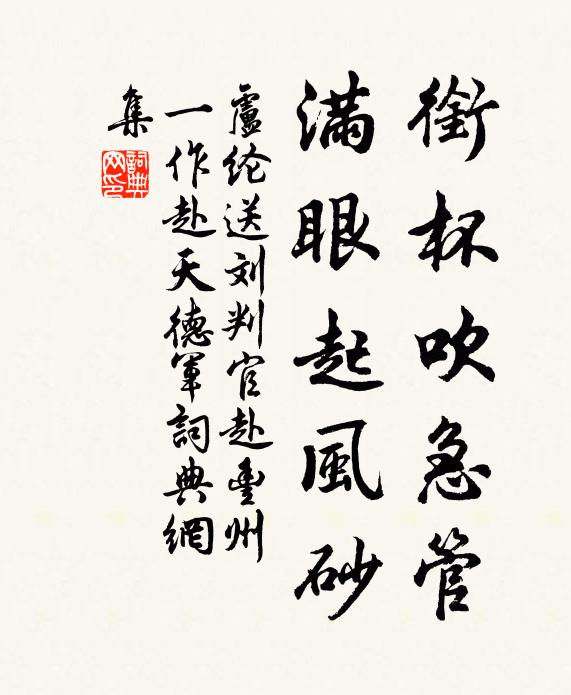 銜杯吹急管
滿眼起風砂
盧纶送刘判官赴豐州
一作赴天德軍詞典網
集
詞典
网印